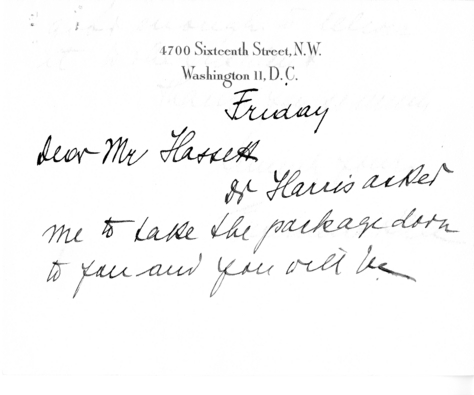 4700 Sixteenth Street, N.W.
Washington 11, D.C.
Friday
Dear Mr Hassett
Dr Harris asked
me to take the package down
to you and you will be